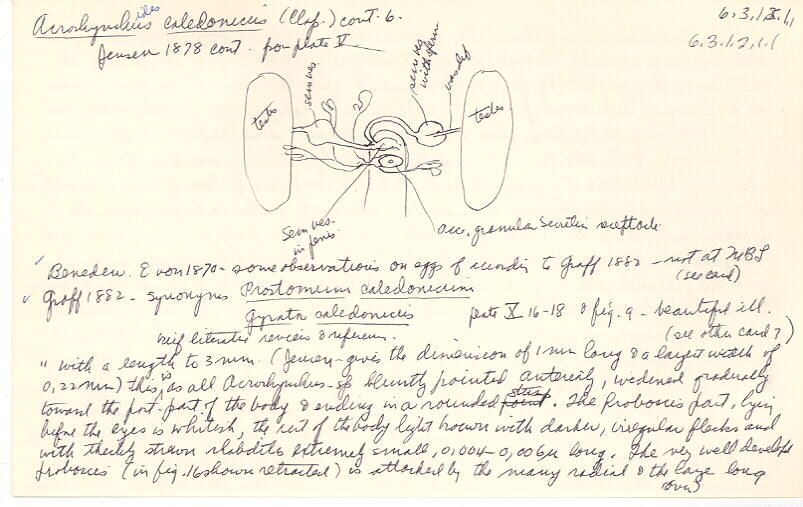 Acrorhynchus ides caledonicus (Clap.) cont. 6.
6.3.1.2.1,
6.3.1.2.1.1
Jensen 1878 cont. from plate V.
testis
sem ves.
sem ves with sperm
vas def
testes.
Sem ves. in penis
acc. granular secretion receptacle
Beneden. E von 1870 - some observations on eggs according to Graff 1882 - not at MBL
(see card)
Graff 1882 - synonyms Prostomum caledonicum
Gyrator caledonicus plate X 16-18 & fig. 9 - beautiful ill.
(see other card ?)
brief literature review & referenc.
" with a length to 3 mm. (Jensen - gives the dimension of 1 mm long & a largest width of
0,22 mm) this is as all Acrorhynchus - sp bluntly pointed anteriorly, widened gradually
toward the post. part of the body & ending in a rounded point. The Proboscis part, lying
before the eyes is whitish, the rest of the body light brown with darker, irregular flecks and
with thickly strewn rhabdites extremely small, 0,004-0,006µ long. The very well developed
proboscis (in fig. 16 shown retracted) is attached by the many radial & the large long
(over)